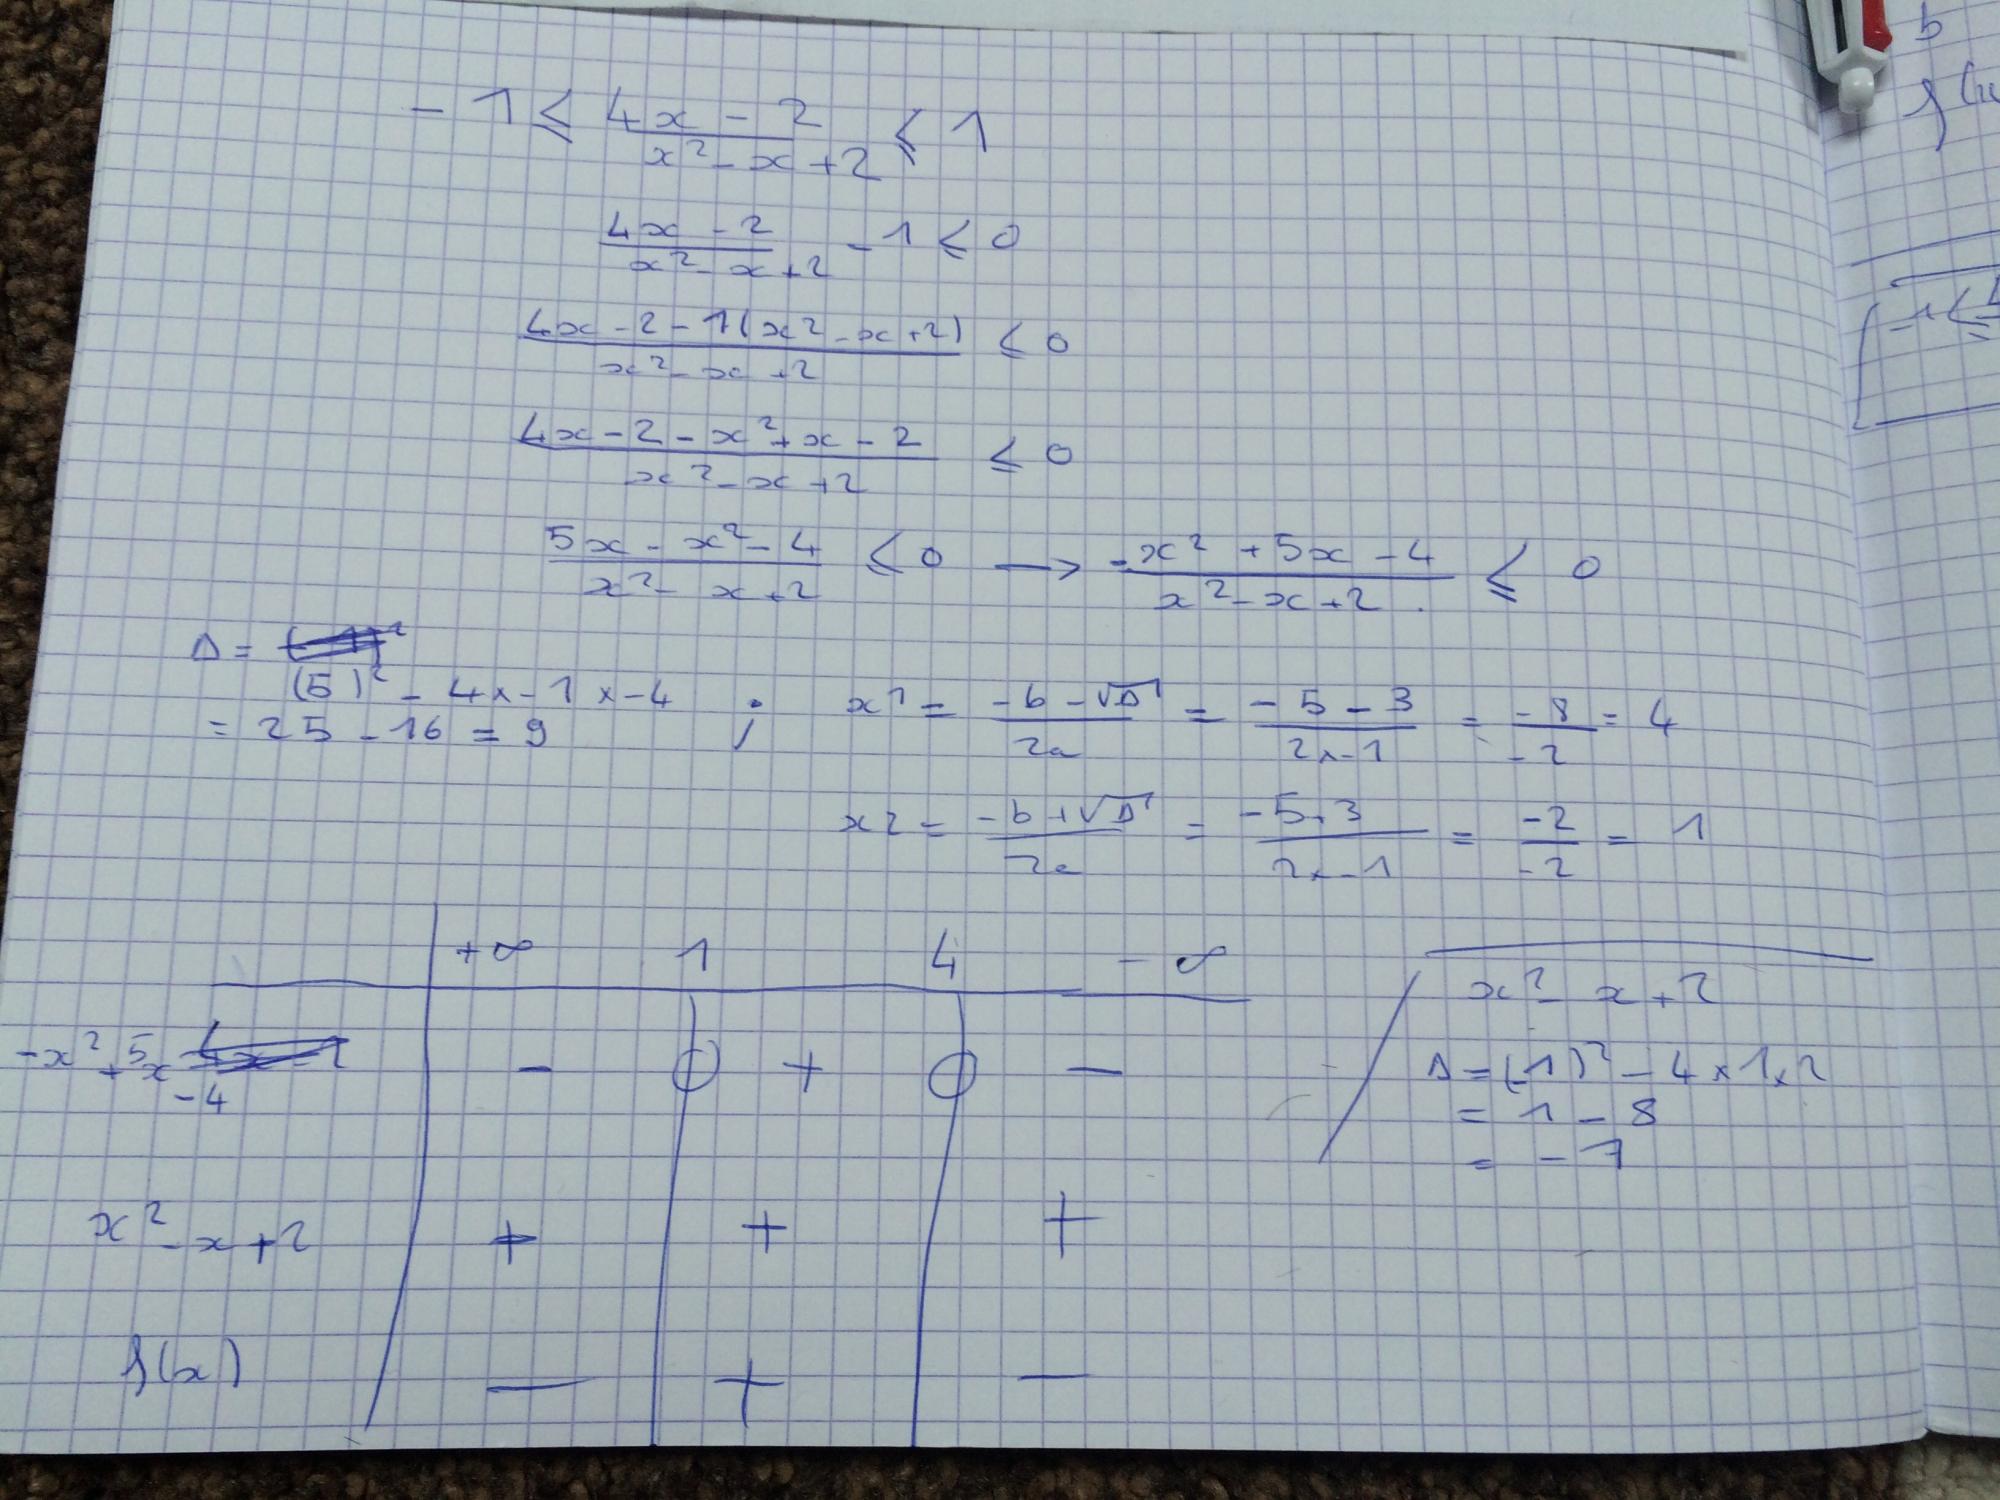 -1 ≤ (4x - 2)/(x² - x + 2) ≤ 1
(4x - 2)/(x² - x + 2) - 1 ≤ 0
(4x - 2 - 1(x² - x + 2))/(x² - x + 2) ≤ 0
(4x - 2 - x² + x - 2)/(x² - x + 2) ≤ 0
(5x - x² - 4)/(x² - x + 2) ≤ 0 → (-x² + 5x - 4)/(x² - x + 2) ≤ 0
Δ =
(5)² - 4 x -1 x -4
= 25 - 16 = 9 ; x1 = (-b - √Δ)/2a = (-5 - 3)/(2x-1) = -8/-2 = 4
x2 = (-b + √Δ)/2a = (-5 + 3)/(2x-1) = -2/-2 = 1
+∞ 1 4 -∞
-x² + 5x - 4 - 0 + 0 -
x² - x + 2 + + +
f(x) - + -
x² - x + 2
Δ = (-1)² - 4 x 1 x 2
= 1 - 8
= -7
b
-1 ≤